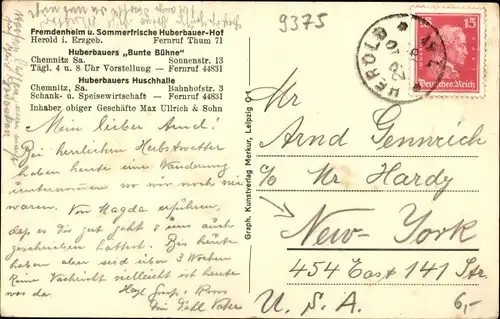 9375
Fremdenheim u. Sommerfrische Huberbauer-Hof
Herold i. Erzgeb. Fernruf Thum 71
Huberbauers „Bunte Bühne"
Chemnitz Sa. Sonnenstr. 13
Tägl. 4 u. 8 Uhr Vorstellung — Fernruf 44831
Huberbauers Huschhalle
Chemnitz, Sa. Bahnhofstr. 3
Schank- u. Speisewirtschaft — Fernruf 44831
Inhaber obiger Geschäfte Max Ullrich & Sohn
Mein lieber Arnd!
Bei herrlichem Herbstwetter
haben heute eine Wanderung
unternommen wo wir noch nie
waren. Von Magda erfuhren,
daß es dir gut geht & uns auch
geschrieben hattest. Bis heute
haben aber seid über 3 Wochen
keine Nachricht vielleicht ist heute
was da.
Dein Vater
Graph. Kunstverlag Merkur, Leipzig O 1
HEROLD
15
Deutsches Reich
Mr
Arnd Gennrich
c/o Mr Hardy
New-York
454 East 141 Str.
U. S. A.
6,-